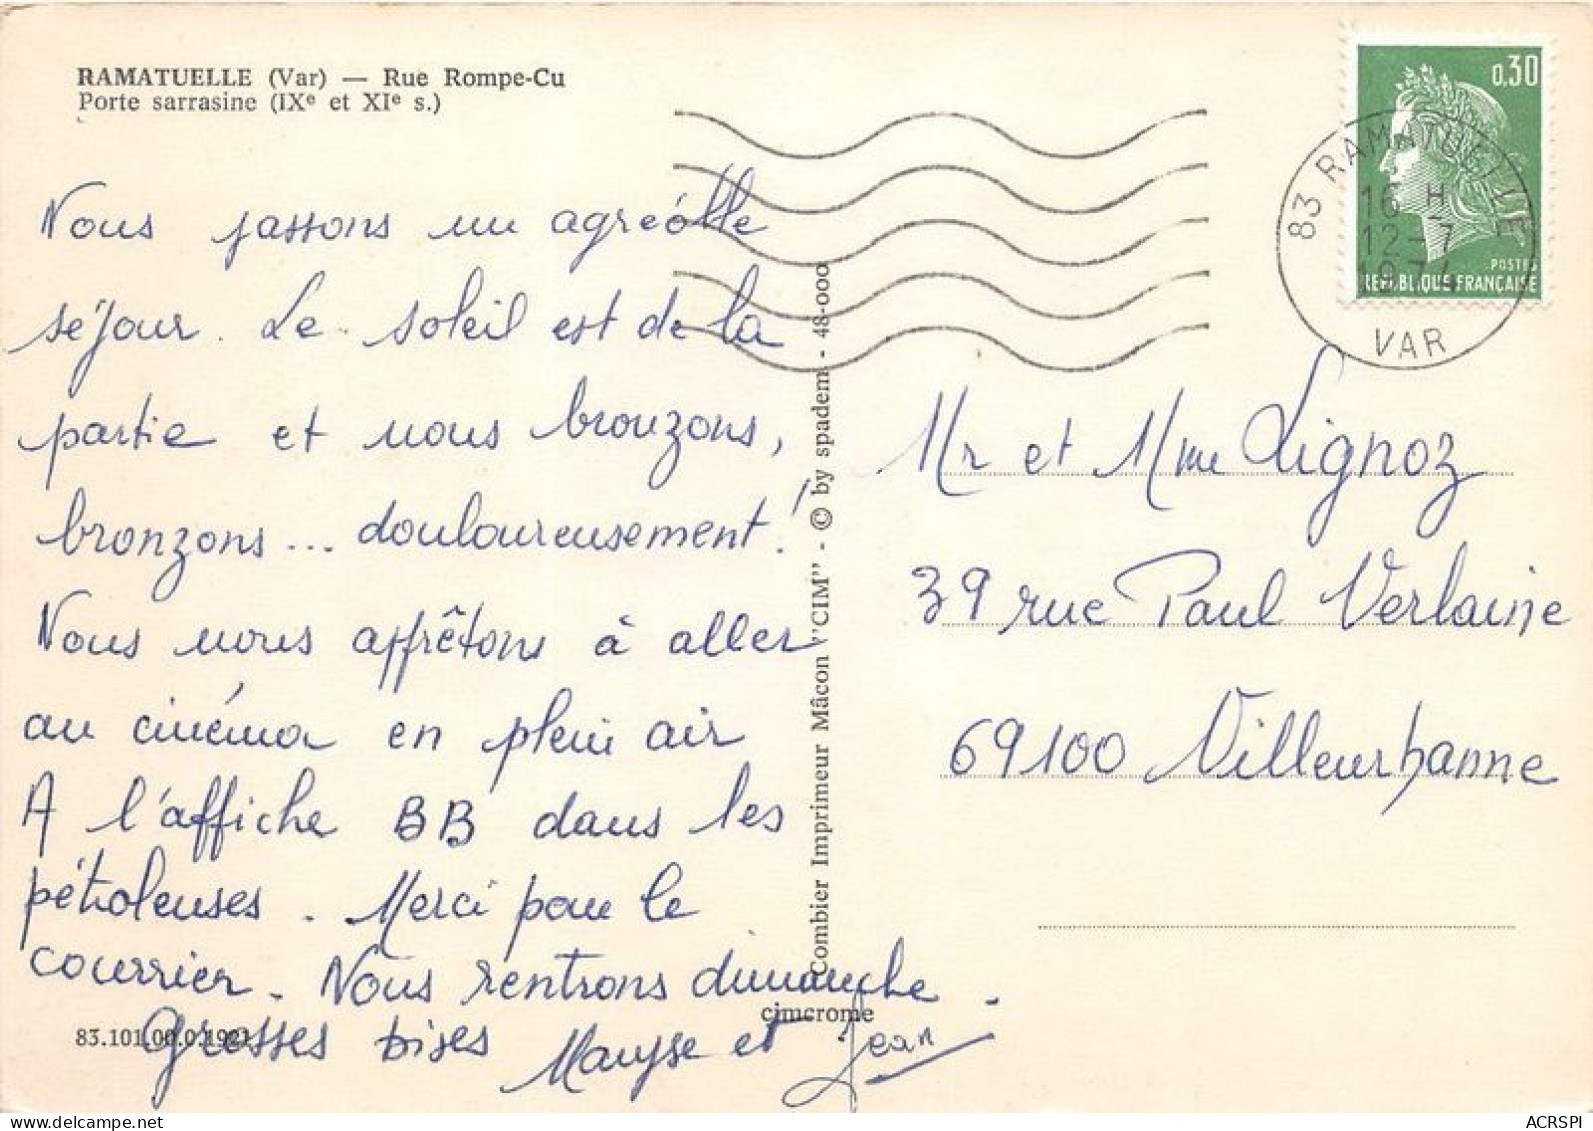 RAMATUELLE (Var) — Rue Rompe-Cu
Porte sarrasine (IXe et XIe s.)
0,30
POSTES
REPUBLIQUE FRANÇAISE
83 RAMATUELLE
16 H
12-7
VAR
Nous passons un agréable
séjour. Le soleil est de la
partie et nous bronzons,
bronzons... douloureusement!
Nous nous apprêtons à aller
au cinéma en plein air
A l'affiche BB dans les
pétroleuses. Merci pour le
courrier. Nous rentrons dimanche.
Grosses bises Mauyse et Jean
83.101.00.0.1921
Combier Imprimeur Mâcon "CIM" - © by spadem - 48-000
cimcrome
Mr et Mme Lignoz
39 rue Paul Verlaine
69100 Villeurbanne
ACRSPI